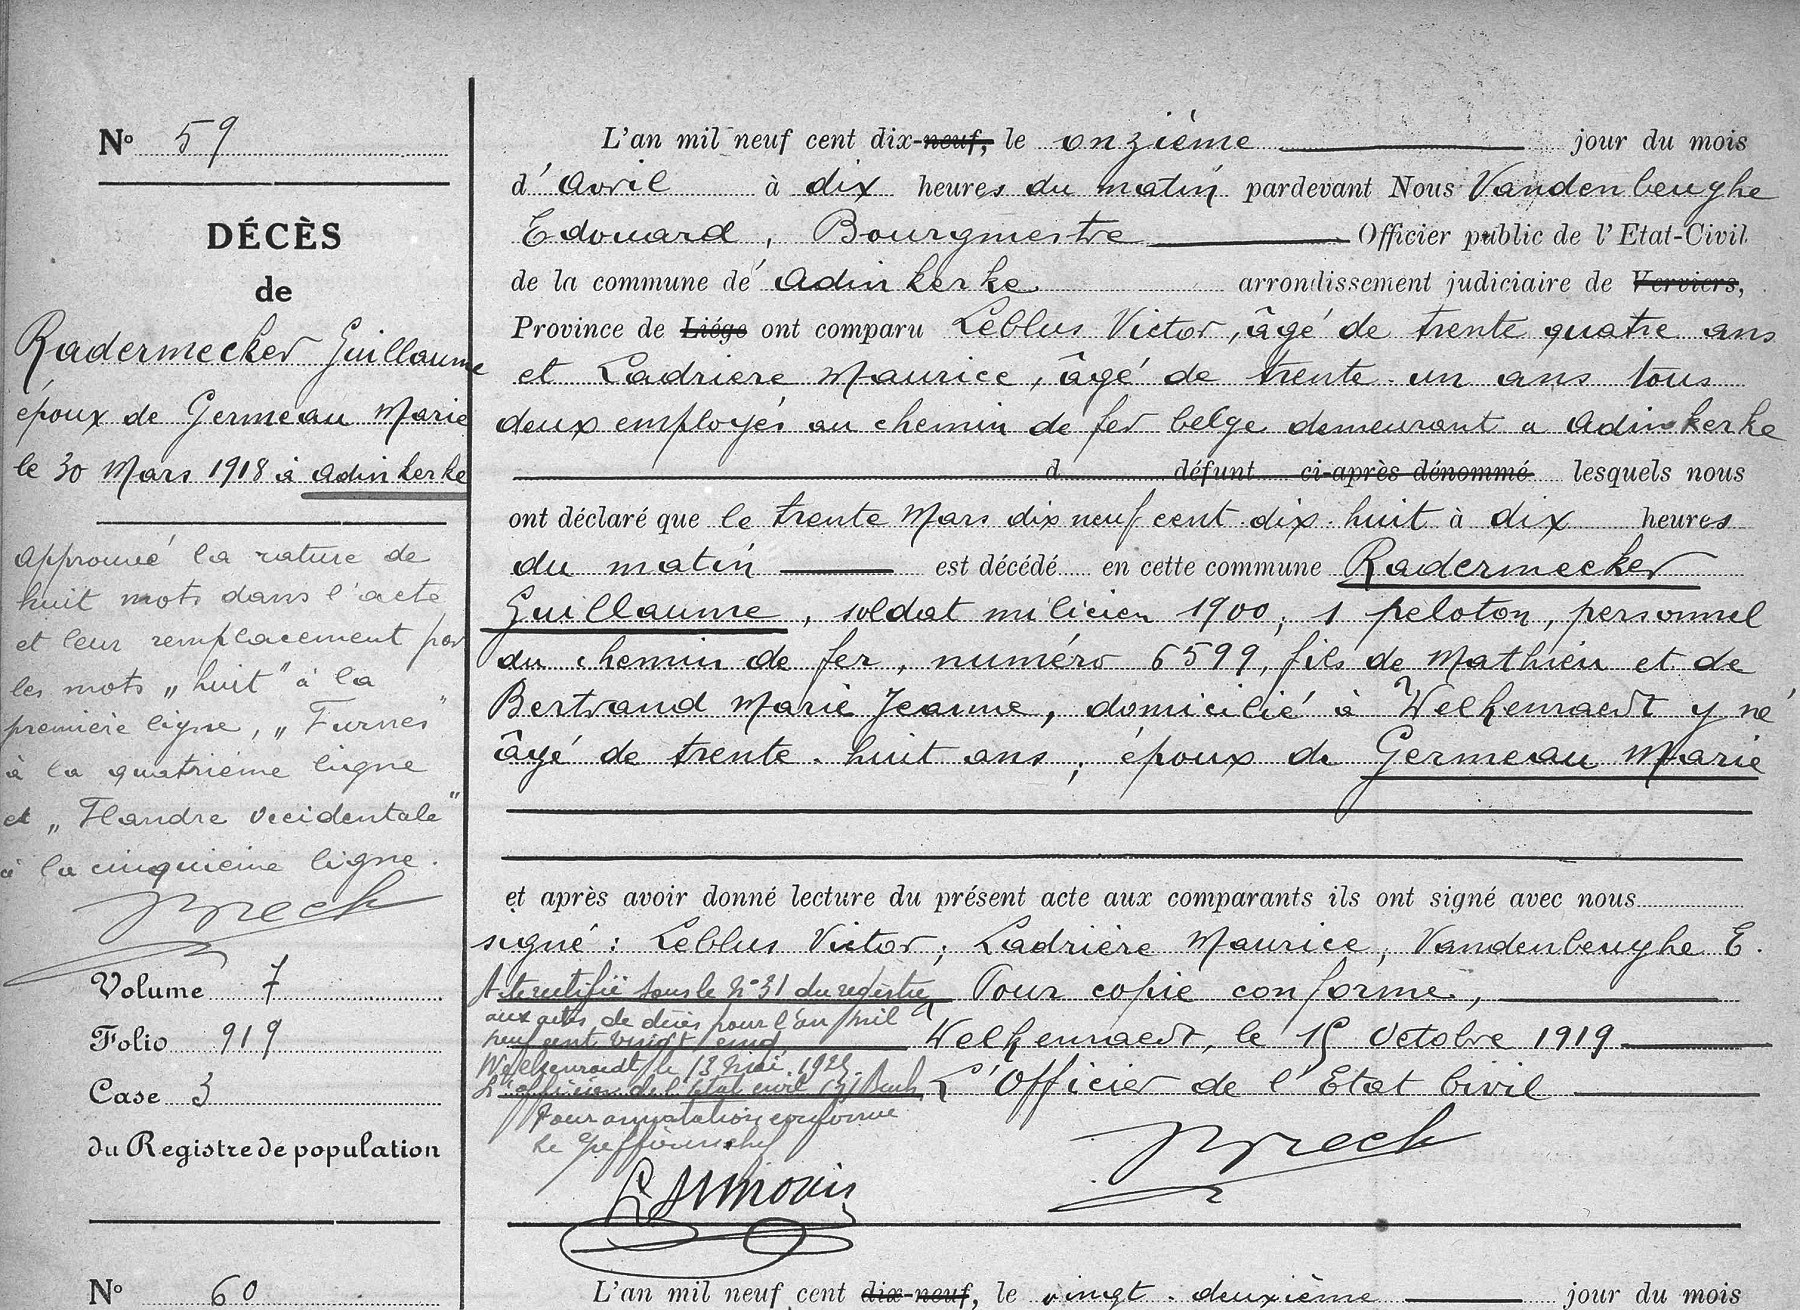 N° 59
DÉCÈS
de
Radermecker Guillaume
époux de Germeau Marie
le 30 Mars 1918 à Adinkerke
approuvé la rature de
huit mots dans l'acte
et leur remplacement par
les mots „huit" à la
première ligne, „Furnes"
à la quatrième ligne
et „Flandre occidentale"
à la cinquième ligne.
Volume 7
Folio 919
Case 3
du Registre de population
N° 60
L'an mil neuf cent dix-neuf, le onzième jour du mois
d'Avril à dix heures du matin pardevant Nous Vandenberghe
Edouard, Bourgmestre Officier public de l'Etat-Civil
de la commune de Adinkerke arrondissement judiciaire de Verviers,
Province de Liége ont comparu Leblus Victor, âgé de trente quatre ans
et Ladrière Maurice, âgé de trente-un ans tous
deux employés au chemin de fer belge demeurant a Adinkerke
d défunt ci-après dénommé lesquels nous
ont déclaré que le trente Mars dix neuf cent dix-huit à dix heures
du matin est décédé en cette commune Radermecker
Guillaume, soldat milicien 1900, 1 peloton, personnel
du chemin de fer, numéro 6599, fils de Mathieu et de
Bertrand Marie Jeanne, domicilié à Welkenraedt y né
âgé de trente-huit ans, époux de Germeau Marie
et après avoir donné lecture du présent acte aux comparants ils ont signé avec nous
signé: Leblus Victor; Ladrière Maurice, Vandenberghe E.
Pour copie conforme,
Welkenraedt, le 15 Octobre 1919
L'Officier de l'Etat Civil
rectifié sous le N° 31 du registre
aux actes de décès pour l'an mil
neuf cent vingt cinq
Welkenraedt, le 13 Mai 1925.
L'officier de l'Etat civil
Pour annotation conforme
L'an mil neuf cent dix-neuf, le vingt-deuxième jour du mois